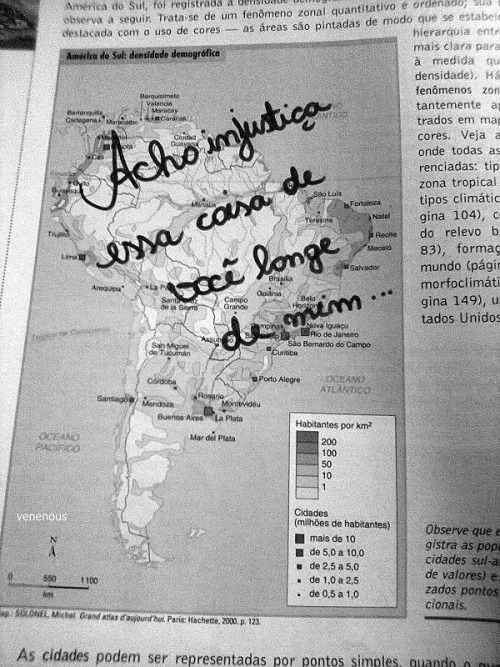 América do Sul, foi registrada a densidade
observa a seguir. Trata-se de um fenômeno zonal quantitativo e ordenado, sua
destacada com o uso de cores — as áreas são pintadas de modo que se estabe
hierarquia entr
mais clara para
à medida qu
densidade). Há
fenômenos zon
tantemente a
trados em map
cores. Veja a
onde todas as
renciadas: tip
zona tropical
tipos climátic
gina 104), c
do relevo b
83), formaç
mundo (págin
morfoclimáti
gina 149), u
tados Unidos
América do Sul: densidade demográfica
Acho injustiça
essa coisa de
você longe
de mim...
Barquisimeto
Valencia
Maracay
Barranquilla
Cartagena
Maracaibo
Caracas
Ciudad
Guayana
Cali
Quito
Guayaquil
Manaus
São Luís
Fortaleza
Teresina
Natal
Recife
Maceió
Salvador
Trujillo
Lima
Arequipa
La P
Santa
de la Sierra
Brasília
Goiânia
Campo
Grande
Belo
Horizonte
Campinas
Nova Iguaçu
Rio de Janeiro
São Bernardo do Campo
Curitiba
San Miguel
de Tucumán
Córdoba
Porto Alegre
Santiago
Mendoza
Rosario
Montevidéu
Buenos Aires
La Plata
Mar del Plata
OCEANO
ATLÂNTICO
OCEANO
PACÍFICO
Trópico de Capricórnio
Habitantes por km²
200
100
50
10
1
Cidades
(milhões de habitantes)
mais de 10
de 5,0 a 10,0
de 2,5 a 5,0
de 1,0 a 2,5
de 0,5 a 1,0
venenous
N
A
0 550 1100
km
SOLONEL, Michel. Grand atlas d'aujourd'hui. Paris: Hachette, 2000. p. 123.
Observe que e
gistra as popu
cidades sul-a
de valores) e
zados pontos
cionais.
As cidades podem ser representadas por pontos simples, quando o